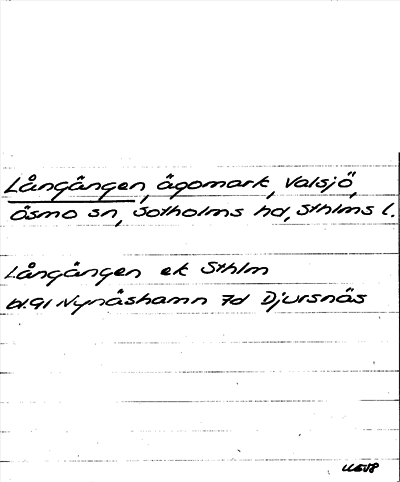 Långängen, ägomark, Valsjö,
Ösmo sn, Sotholms hd, Sthlms l.
Långängen ek Sthlm
bl.91 Nynäshamn 7d Djursnäs